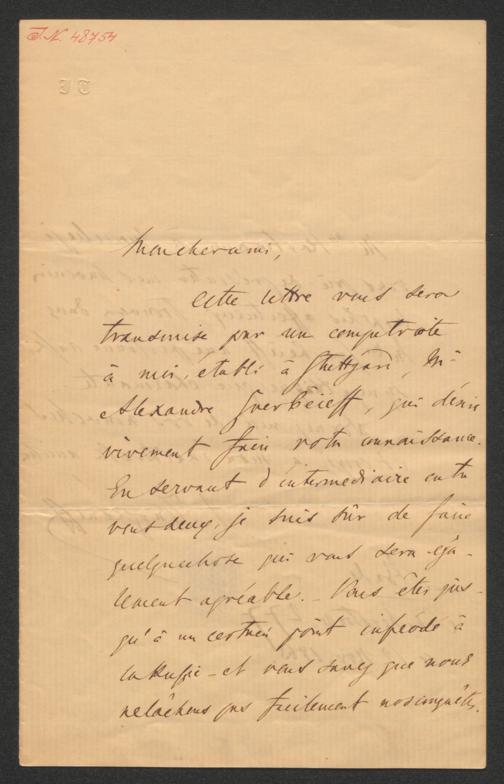 I.N. 48754
Mon cher ami,
Cette lettre vous sera
transmise par un compatriote
à moi, etabli à Stuttgard, Mr
Alexandre, qui désire
vivement faire votre connaissance.
En servant d'intermediaire entre
vous deux, je suis sûr de faire
quelquechose qui vous sera éga-
lement agréable. – Vous êtes jus-
qu'à un certain point inféodé à
la Russie – et vous savez que nous
ne lâchons pas facilement nos conquêtes.